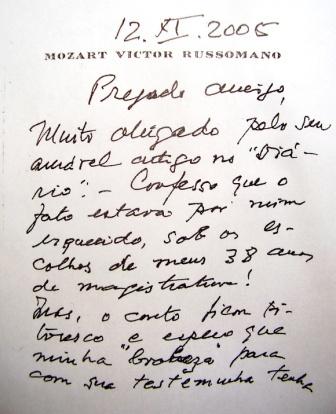 12.XI.2005
MOZART VICTOR RUSSOMANO
Prezado amigo,
Muito obrigado pelo seu
amável artigo no "Diá-
rio". – Confesso que o
fato estava por mim
esquecido, sob os es-
colhos de meus 38 anos
de magistratura!
Mas, o conto ficou pi-
toresco e espero que
minha "braveza" para
com sua testemunha tenha